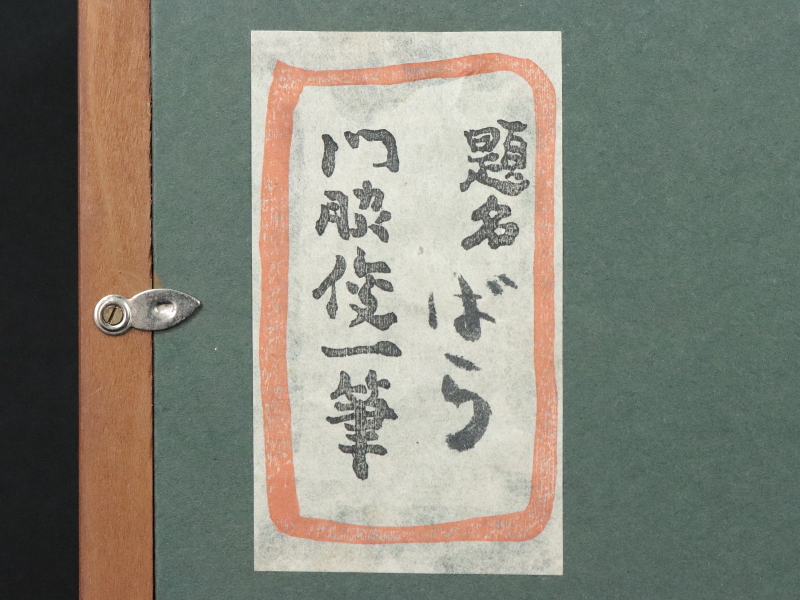 題名 ばら
門脇俊一筆